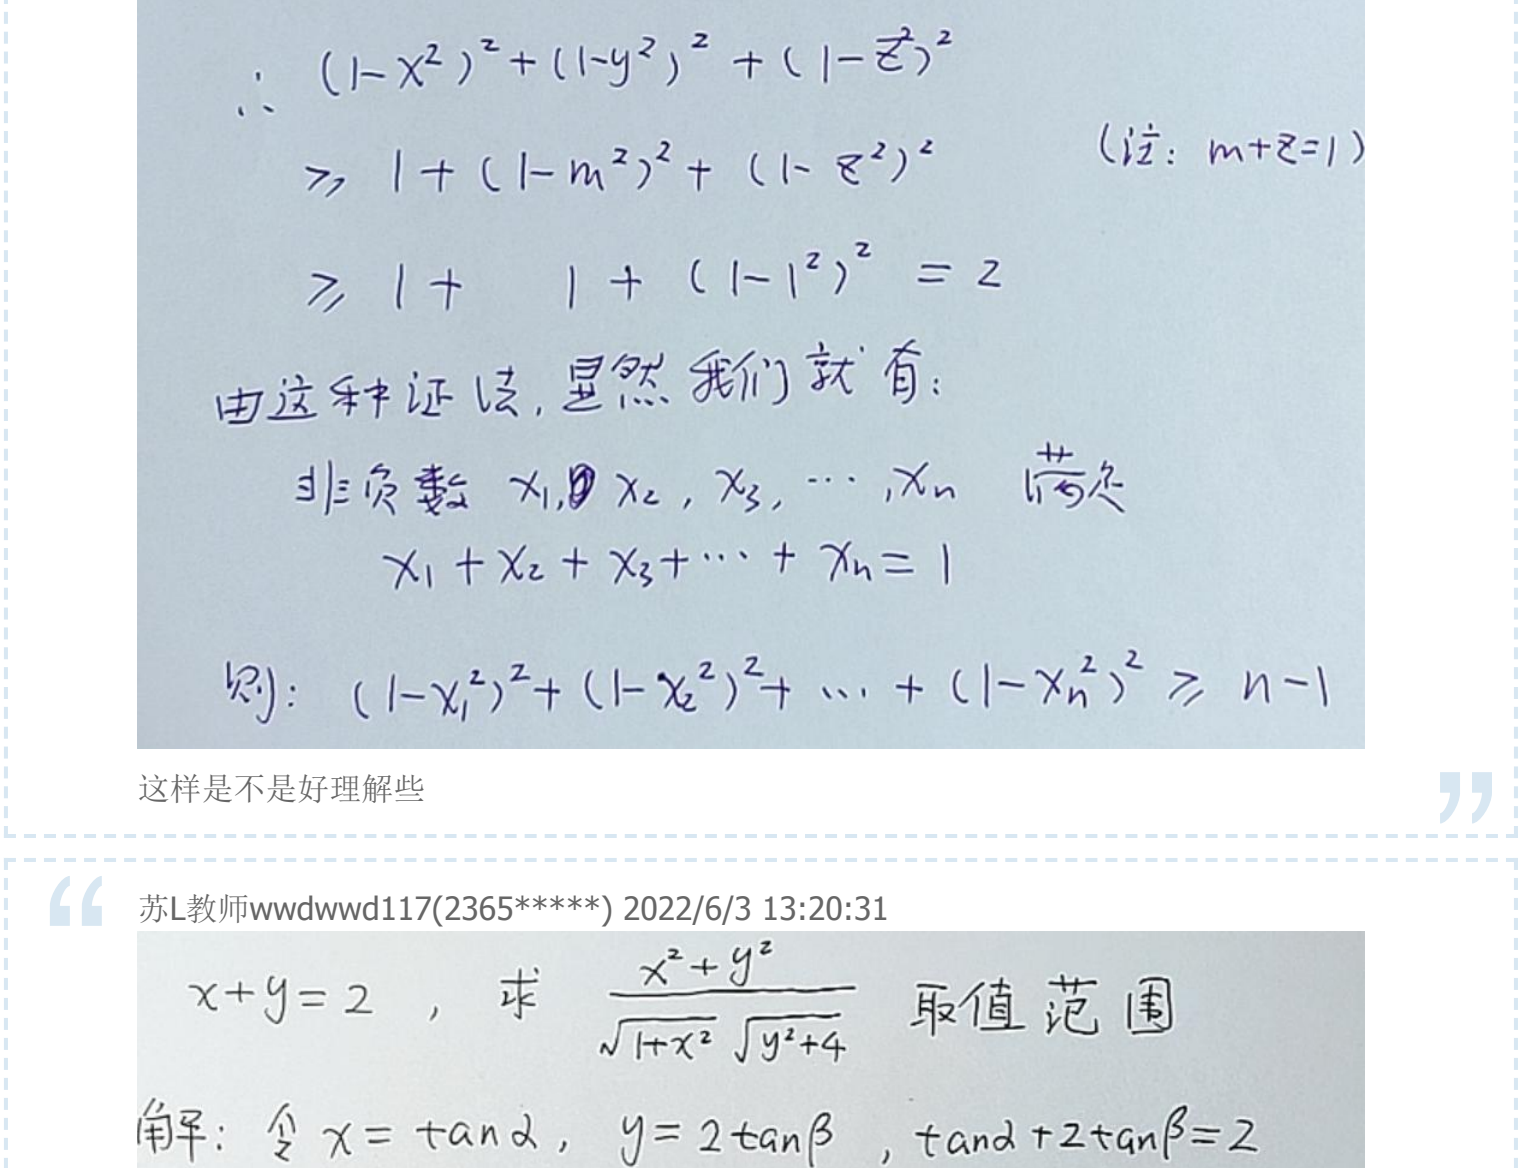 ∴ (1-x²)²+(1-y²)²+(1-z²)²
≥ 1+(1-m²)²+(1-z²)² (注: m+z=1)
≥ 1+ 1+(1-1²)²=2
由这种证法,显然我们就有:
非负数 x₁, x₂, x₃, ⋯, xₙ 满足
x₁+x₂+x₃+⋯+xₙ=1
则: (1-x₁²)²+(1-x₂²)²+⋯+(1-xₙ²)² ≥ n-1
这样是不是好理解些
苏L教师wwdwwd117(2365*****) 2022/6/3 13:20:31
x+y=2, 求 (x²+y²)/(√(1+x²) √(y²+4)) 取值范围
解: 令 x=tanα, y=2tanβ, tanα+2tanβ=2